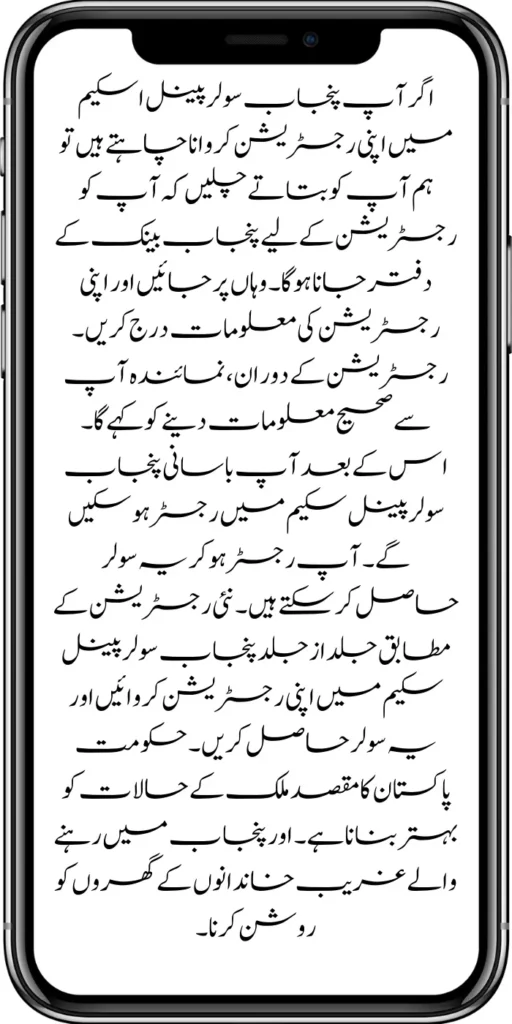 اگر آپ پنجاب سولر پینل اسکیم
میں اپنی رجسٹریشن کروانا چاہتے ہیں تو
ہم آپ کو بتاتے چلیں کہ آپ کو
رجسٹریشن کے لیے پنجاب بینک کے
دفتر جانا ہو گا۔ وہاں پر جائیں اور اپنی
رجسٹریشن کی معلومات درج کریں۔
رجسٹریشن کے دوران، نمائندہ آپ
سے صحیح معلومات دینے کو کہے گا۔
اس کے بعد آپ باسانی پنجاب
سولر پینل سکیم میں رجسٹر ہو سکیں
گے۔ آپ رجسٹر ہو کر یہ سولر
حاصل کر سکتے ہیں۔ نئی رجسٹریشن کے
مطابق جلد از جلد پنجاب سولر پینل
سکیم میں اپنی رجسٹریشن کروائیں اور
یہ سولر حاصل کریں۔ حکومت
پاکستان کا مقصد ملک کے حالات کو
بہتر بنانا ہے۔ اور پنجاب میں رہنے
والے غریب خاندانوں کے گھروں کو
روشن کرنا۔